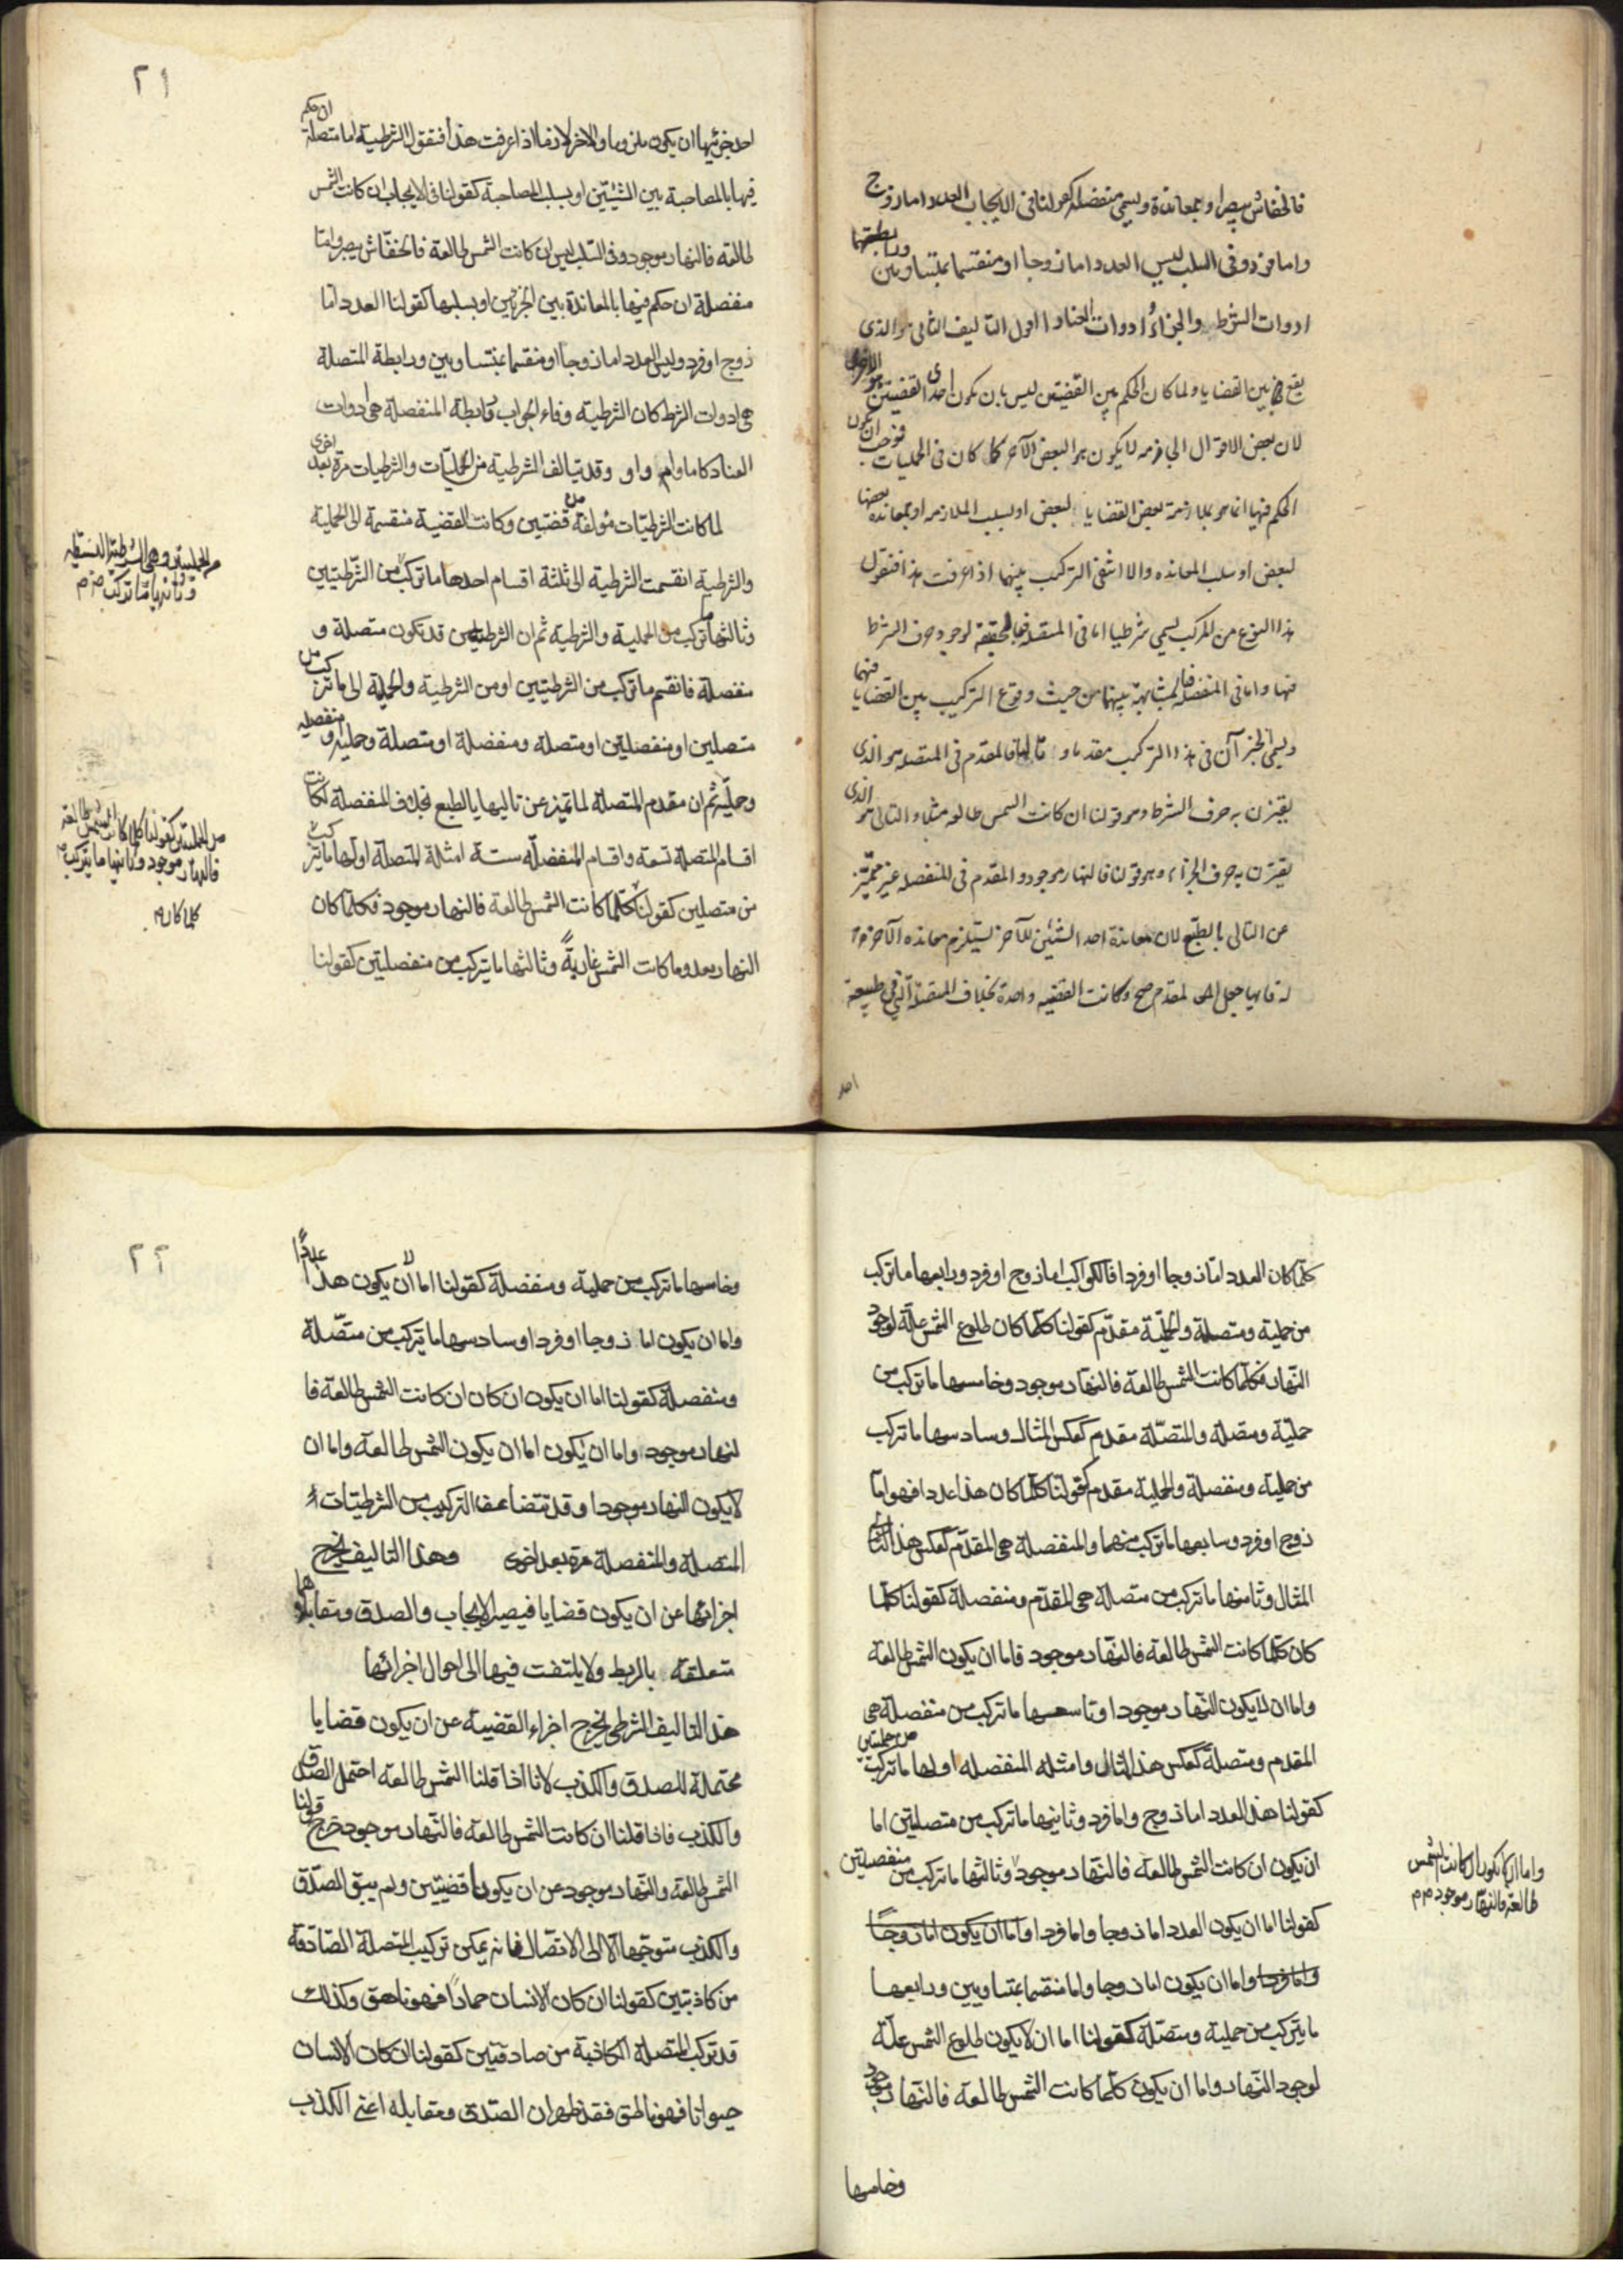 فالخفاش يبصر او بمعاندة ويسمى منفصلة كقولنا فى الايجاب العدد اما زوج
واما فرد وفى السلب ليس العدد اما زوجا او منقسما بمتساويين ورابطتها
ادوات الشرط والجزاء وادوات العناد اقول التاليف الثانى هو الذى
يقع بين القضايا ولما كان الحكم بين القضيتين ليس بان يكون احدى القضيتين هو الاخرى
لان بعض الاقوال الجازمه لا يكون هو البعض الآخر كما كان فى الحمليات فوجب ان يكون
الحكم فيها انما هو بملازمة بعض القضايا لبعض او لسلب الملازمه او بمعانده بعضها
لبعض او سلب المعانده والا انتفى التركيب بينهما اذا عرفت هذا فنقول
هذا النوع من المركب يسمى شرطيا اما فى المتصله فبالحقيقة لوجود حرف الشرط
فيها واما فى المنفصله فلمشابهة بينهما من حيث وقوع التركيب بين القضايا فيهما
ويسمى الجزآن فى هذا التركيب مقدما و تاليا فالمقدم فى المتصله هو الذى
يقترن به حرف الشرط وهو قولنا ان كانت الشمس طالعه مثلا والتالى هو الذى
يقترن به حرف الجزاء وهو قولنا فالنهار موجود والمقدم فى المنفصله غير متميّز
عن التالى بالطبع لان معاندة احد الشيئين للآخر يستلزم معانده الآخر
له فايهما جعل المقدم صح وكانت القضيه واحدة بخلاف المتصلة التى فى طبيعة
احد
٢١
احد جزئيها ان يكون ملزوما والاخر لازما اذا عرفت هذا فنقول الشرطية اما متصلة ان حكم
فيها بالمصاحبة بين الشيئين او بسلب المصاحبة كقولنا فى الايجاب ان كانت الشمس
طالعة فالنهار موجود وفى السلب ليس ان كانت الشمس طالعة فالخفّاش يبصر واما
منفصلة ان حكم فيها بالمعاندة بين الجزئين او بسلبها كقولنا العدد امّا
زوج او فرد وليس العدد اما زوجا او منقسما بمتساويين ورابطة المتصلة
هى ادوات الشرط كان الشرطية وفاء الجواب ورابطة المنفصلة هى ادوات
العناد كاما وام واو وقد تتالف الشرطية من الحمليّات والشرطيات مرة بعد اخرى
لما كانت الشرطيّات مؤلفة من قضيتين وكانت القضية منقسمة الى الحملية
والشرطية انقسمت الشرطية الى ثلثة اقسام احدها ما تركب من الشّرطيتين
من الحمليتين وهى الشرطية البسيطه
وثانيها ما تركب
وثالثها ما تركب من الحملية والشرطية ثم ان الشرطيتين قد تكون متصلة و
منفصلة فانقسم ما تركب من الشرطيتين او من الشرطية والحملية الى ما تركب من
متصلين او منفصلتين او متصلة ومنفصلة او متصلة وحملية او منفصله
وحمليّة ثم ان مقدم المتصلة لما تميز عن تاليها بالطبع بخلاف المنفصلة كانت
اقسام المتصلة تسعة واقسام المنفصلّة ستة امثلة المتصلة اولها ما يتركب
من الحمليتين كقولنا كلما كانت الشمس طالعة
فالنهار موجود وثانيها ما يتركب
من متصلين كقولنا كلّما كانت الشمس طالعة فالنهار موجود فكلما كان
كلما كان
النهار معدوما كانت الشمس غاربةً وثالثها ما يتركب من منفصليتين كقولنا
كلّما كان العدد امّا زوجا او فردا فالكواكب اما زوج او فرد ورابعها ما تركب
من حملية ومتصلة والحمليّة مقدّم كقولنا كلّما كان طلوع الشمس علّة لوجود
النّهار فكلّما كانت الشمس طالعة فالنهار موجود وخامسها ما تركب من
حمليّة ومتصله والمتصّلة مقدم كعكس المثال وسادسها ما تركب
من حملية ومنفصلة والحملية مقدم كقولنا كلّما كان هذا عددا فهو امّا
زوج او فرد وسابعها ما تركب منهما والمنفصلة هى المقدّم كعكس هذا
المثال وثامنها ما تركب من متصلة هى المقدّم ومنفصلة كقولنا كلّما
كان كلّما كانت الشمس طالعة فالنّهار موجود فاما ان يكون الشمس طالعة
واما ان لا يكون النّهار موجودا وتاسعها ما تركب من منفصلة هى
المقدم ومتصلةً كعكس هذا المثال وامثله المنفصله اولها ما تركبت من حمليتين
كقولنا هذا العدد اما زوج واما فرد وثانيها ما تركب من متصليتين اما
ان يكون ان كانت الشمس طالعة فالنهار موجود وثالثها ما تركب من منفصلتين
واما ان لا يكون ان كانت الشمس
طالعة فالنهار موجود
كقولنا اما ان يكون العدد اما زوجا واما فردا واما ان يكون اما زوجًا
واما فردا واما ان يكون اما زوجا واما منقسما بمتساويين ورابعها
ما يتركب من حملية ومتصّلة كقولنا اما ان لا يكون طلوع الشمس علّة
لوجود النّهار واما ان يكون كلّما كانت الشمس طالعة فالنّهار موجود
وخامسها
٢٢
وخامسها ما تركب من حملية ومنفصلة كقولنا اما ان لا يكون هذا عددًا
واما ان يكون اما زوجا او فردا وسادسها ما يتركب من متصّلة
ومنفصلة كقولنا اما ان يكون ان كان ان كانت الشمس طالعة فا
لنهار موجود واما ان يكون اما ان يكون الشمس طالعة واما ان
لا يكون النهار موجودا وقد تتضاعف التركيب من الشرطيّات
المتصلة والمنفصلة مرة بعد اخرى وهذا التاليف يخرج
اجزائها عن ان يكون قضايا فيصير الايجاب والصدق ومتقابلاهما
متعلقة بالربط ولا يلتفت فيها الى احوال اجزائها
هذا التاليف الشرطى يخرج اجزاء القضية عن ان يكون قضايا
محتملة للصدق والكذب لانا اذا قلنا الشمس طالعه احتمل الصدق
والكذب فاذا قلنا ان كانت الشمس طالعة فالنّهار موجود خرج قولنا
الشمس طالعة والنّهار موجود عن ان يكونا قضيتين ولم يبق الصّدق
والكذب متوجّها الا الى الاتصال فانه يمكن تركيب المتصلة الصّادقة
من كاذبتين كقولنا ان كان الانسان حمارًا فهو ناهق وكذلك
قد تركب المتصلة الكاذبة من صادقتين كقولنا ان كان الانسان
حيوانا فهو ناطق فقد ظهر ان الصّدق ومقابله اعنى الكذب